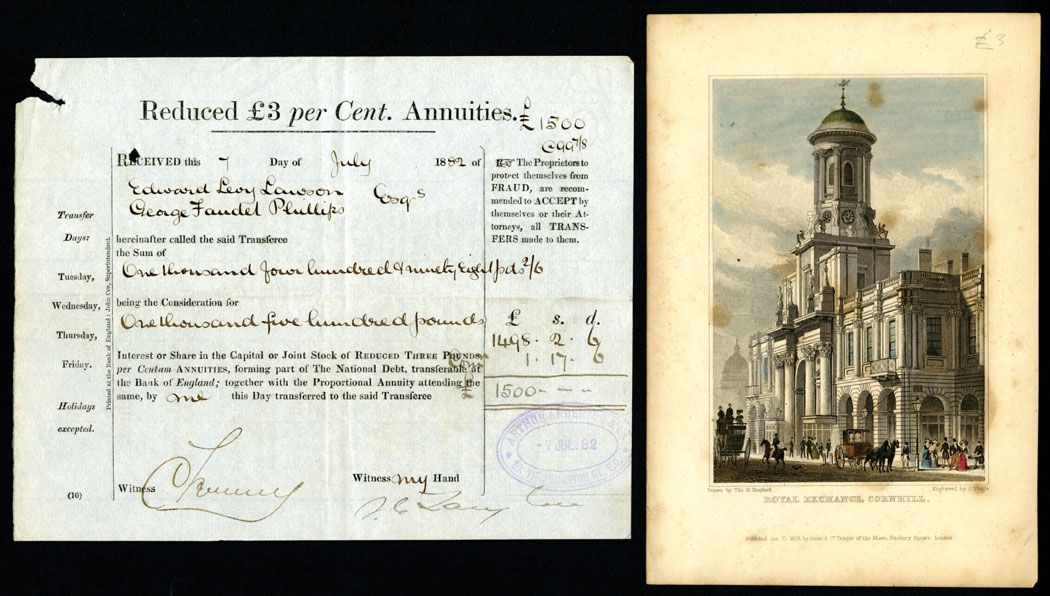 Reduced £3 per Cent. Annuities.
£1500
@99 7/8
RECEIVED this 7 Day of July 1882 of
Edward Levy Lawson
George Faudel Phillips Esqrs
hereinafter called the said Transferee
the Sum of
One thousand four hundred & ninety Eight pds 2/6
being the Consideration for
One thousand five hundred pounds
Interest or Share in the Capital or Joint Stock of REDUCED THREE POUNDS
per Centum ANNUITIES, forming part of The National Debt, transferable at
the Bank of England; together with the Proportional Annuity attending the
same, by me this Day transferred to the said Transferee
Witness
Witness my Hand
(16)
Transfer
Days:
Tuesday,
Wednesday,
Thursday,
Friday.
Holidays
excepted.
Printed at the Bank of England: John Coe, Superintendent.
The Proprietors to
protect themselves from
FRAUD, are recom-
mended to ACCEPT by
themselves or their At-
torneys, all TRANS-
FERS made to them.
£ s. d.
1498 . 2 . 6
1 . 17 . 6
1500 - - -
-7 JUL. 82
£3
Drawn by Tho. H. Shepherd.
Engraved by J. Tingle
ROYAL EXCHANGE, CORNHILL.
Published Jan. 1829, by Jones & Co. Temple of the Muses, Finsbury Square, London.